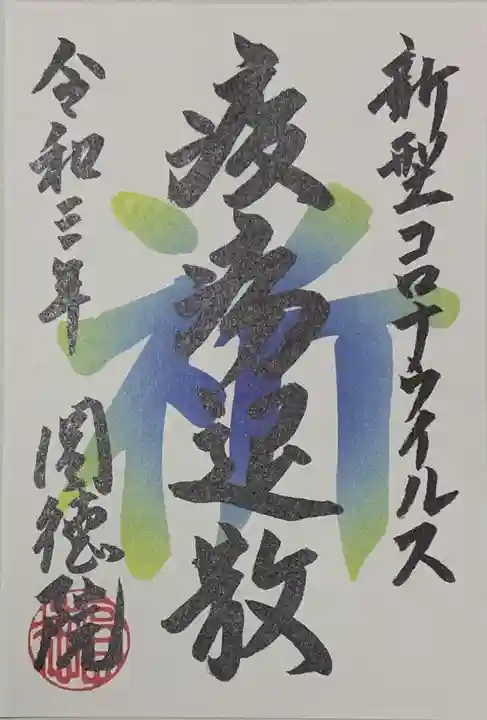 新型コロナウイルス
疫病退散
祈
令和三年 圓徳院